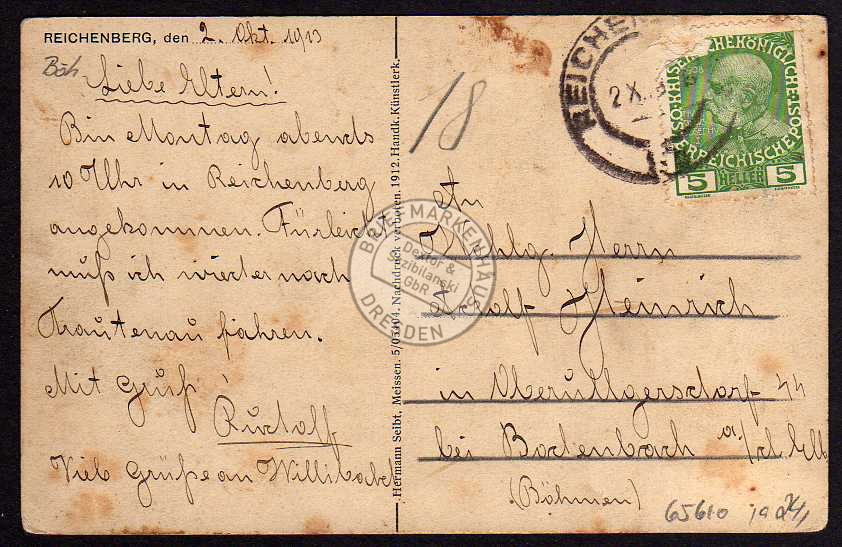 REICHENBERG, den 2. Okt. 1913
Böh
Liebe Eltern!
Bin Montag abends
10 Uhr in Reichenberg
angekommen. Fürleicht
muß ich wieder nach
Trautenau fahren.
Mit Gruß
Rudolf
Viele Grüße an Willibald
Hermann Seibt, Meissen. 5/05404. Nachdruck verboten. 1912. Handk. Künstlerk.
18
REICHEN
2 X
KAISERLICHEKÖNIGLICHE
ÖSTERREICHISCHE POST
5 HELLER 5
An
Wohlg. Herrn
Adolf Heinrich
in Oberullgersdorf 44
bei Bodenbach a/d. Elb
(Böhmen)
65610
BRIEFMARKENHAUS
Dextor &
Sezibilanski
GbR
DRESDEN